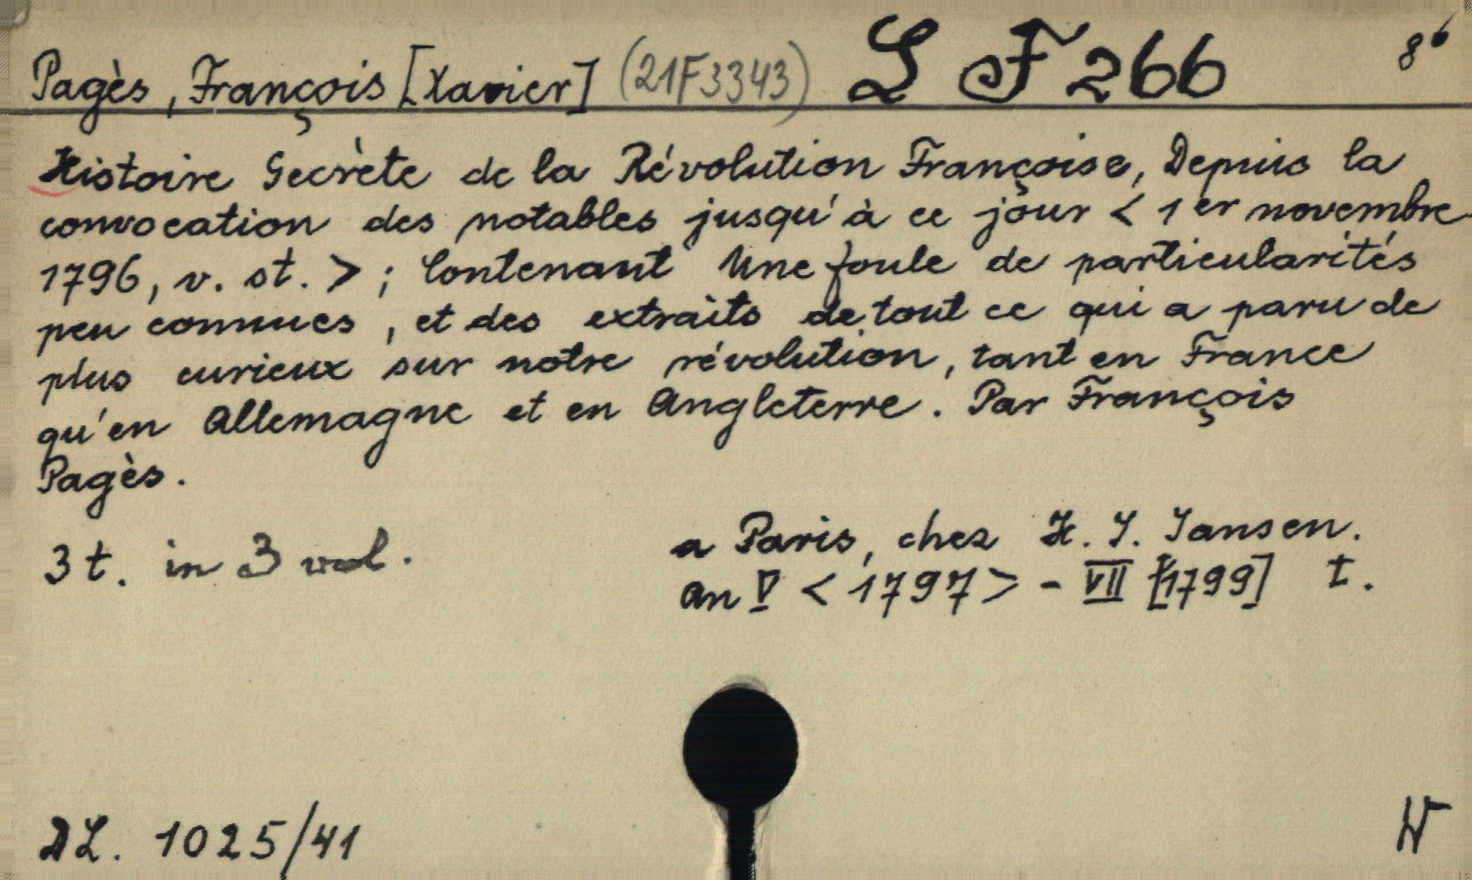 Pagès, François [Xavier] (21F3343) L F 266 8°
Histoire Secrète de la Révolution Françoise, Depuis la
convocation des notables jusqu'à ce jour < 1 er novembre
1796, v. st. > ; Contenant Une foule de particularités
peu connues, et des extraits de tout ce qui a paru de
plus curieux sur notre révolution, tant en France
qu'en Allemagne et en Angleterre. Par François
Pagès.
a Paris, chez H. J. Jansen.
3 t. in 3 vol.
an V < 1797 > - VII [1799] t.
DL. 1025/41
W